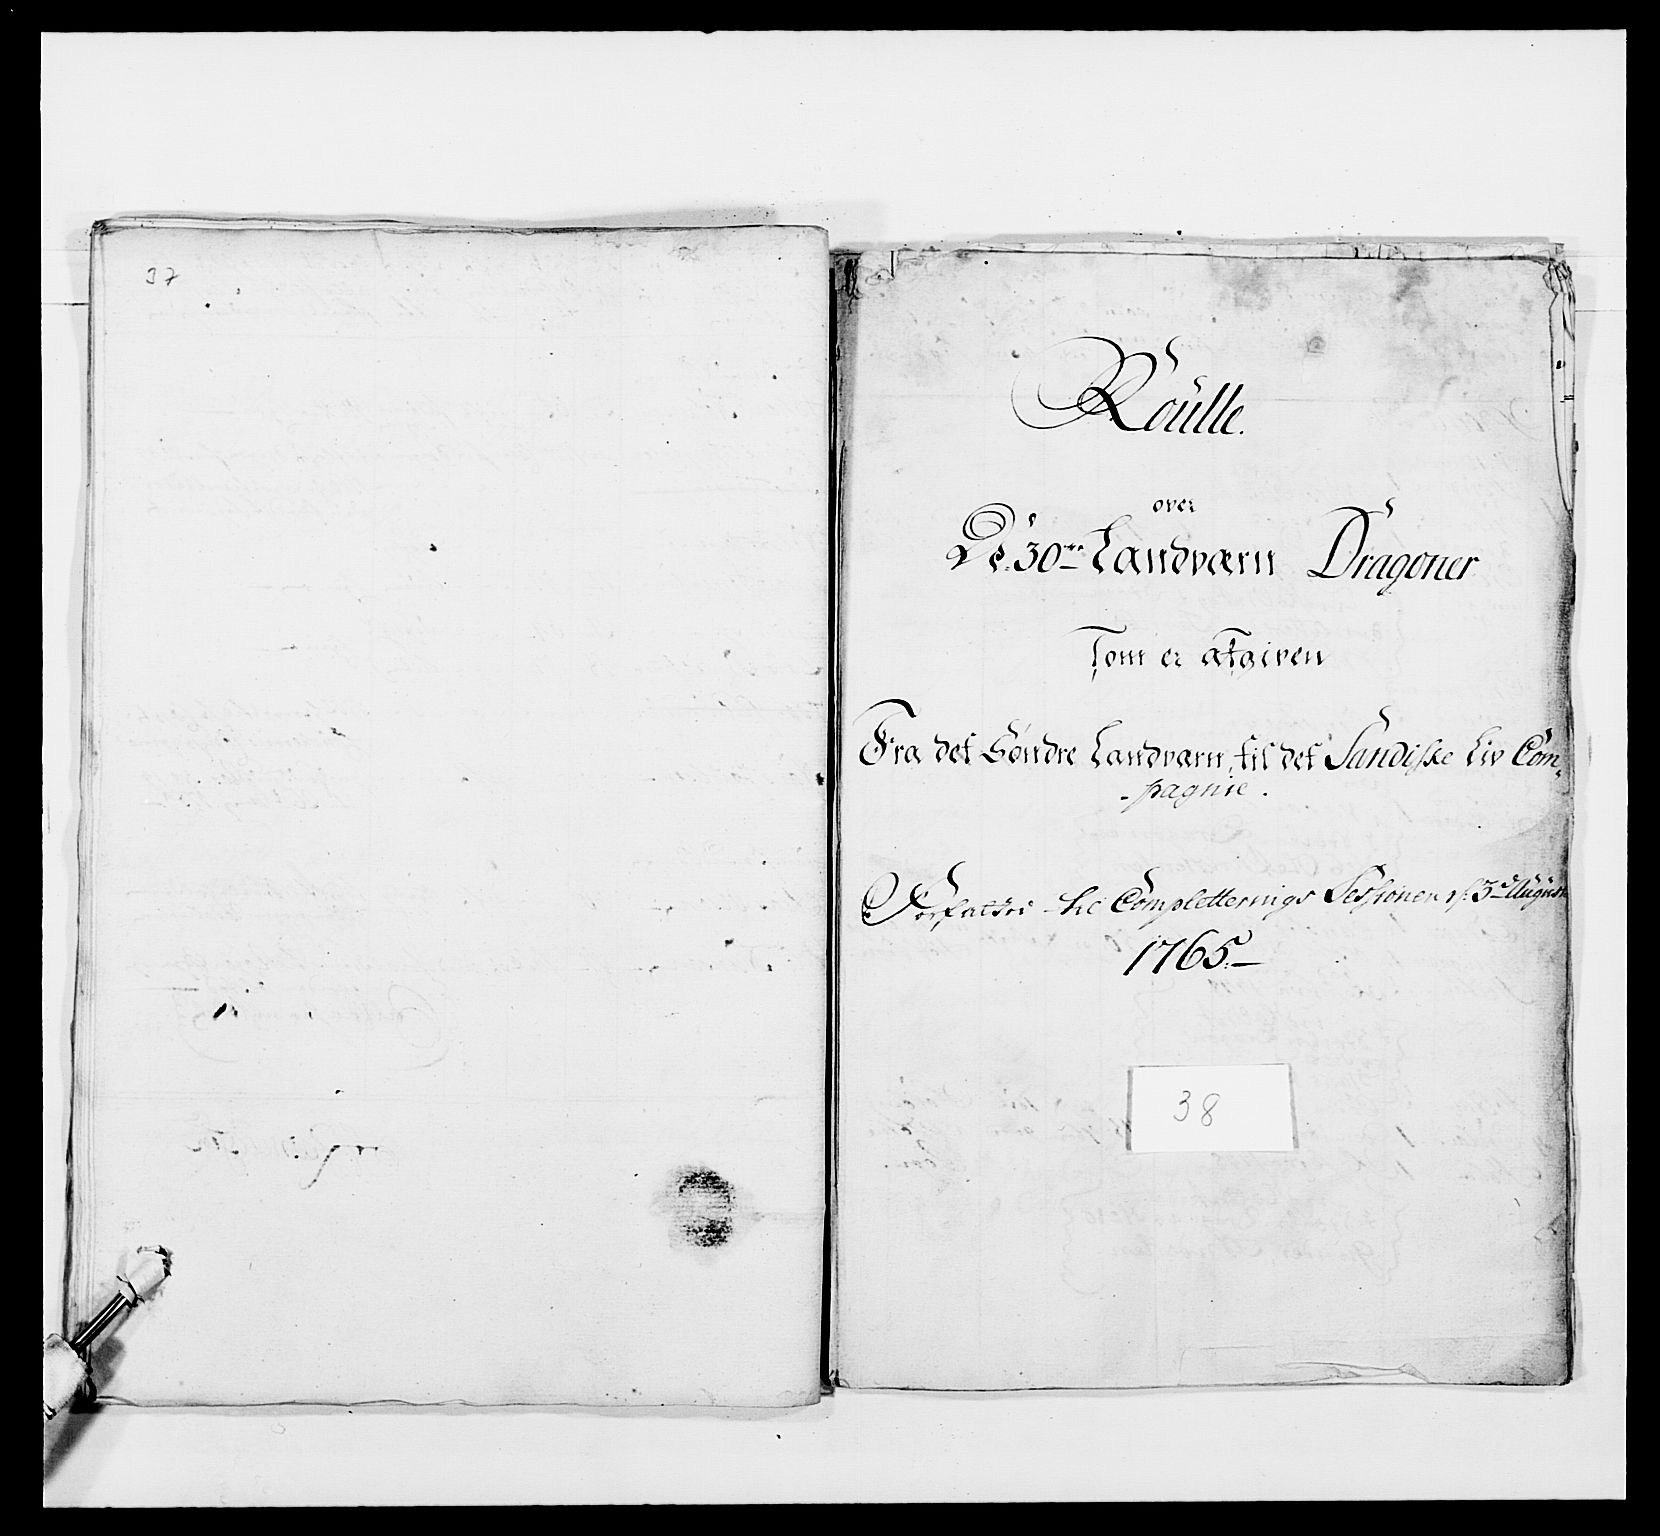 37
Roülle.
over
De 30ve Landværn Dragoner
Som er afgiven
Fra det Søndre Landværn, til det Sandiske Liv Com-
-pagnie.
Forfattet Completterings Sessionen 3de August
1765
38